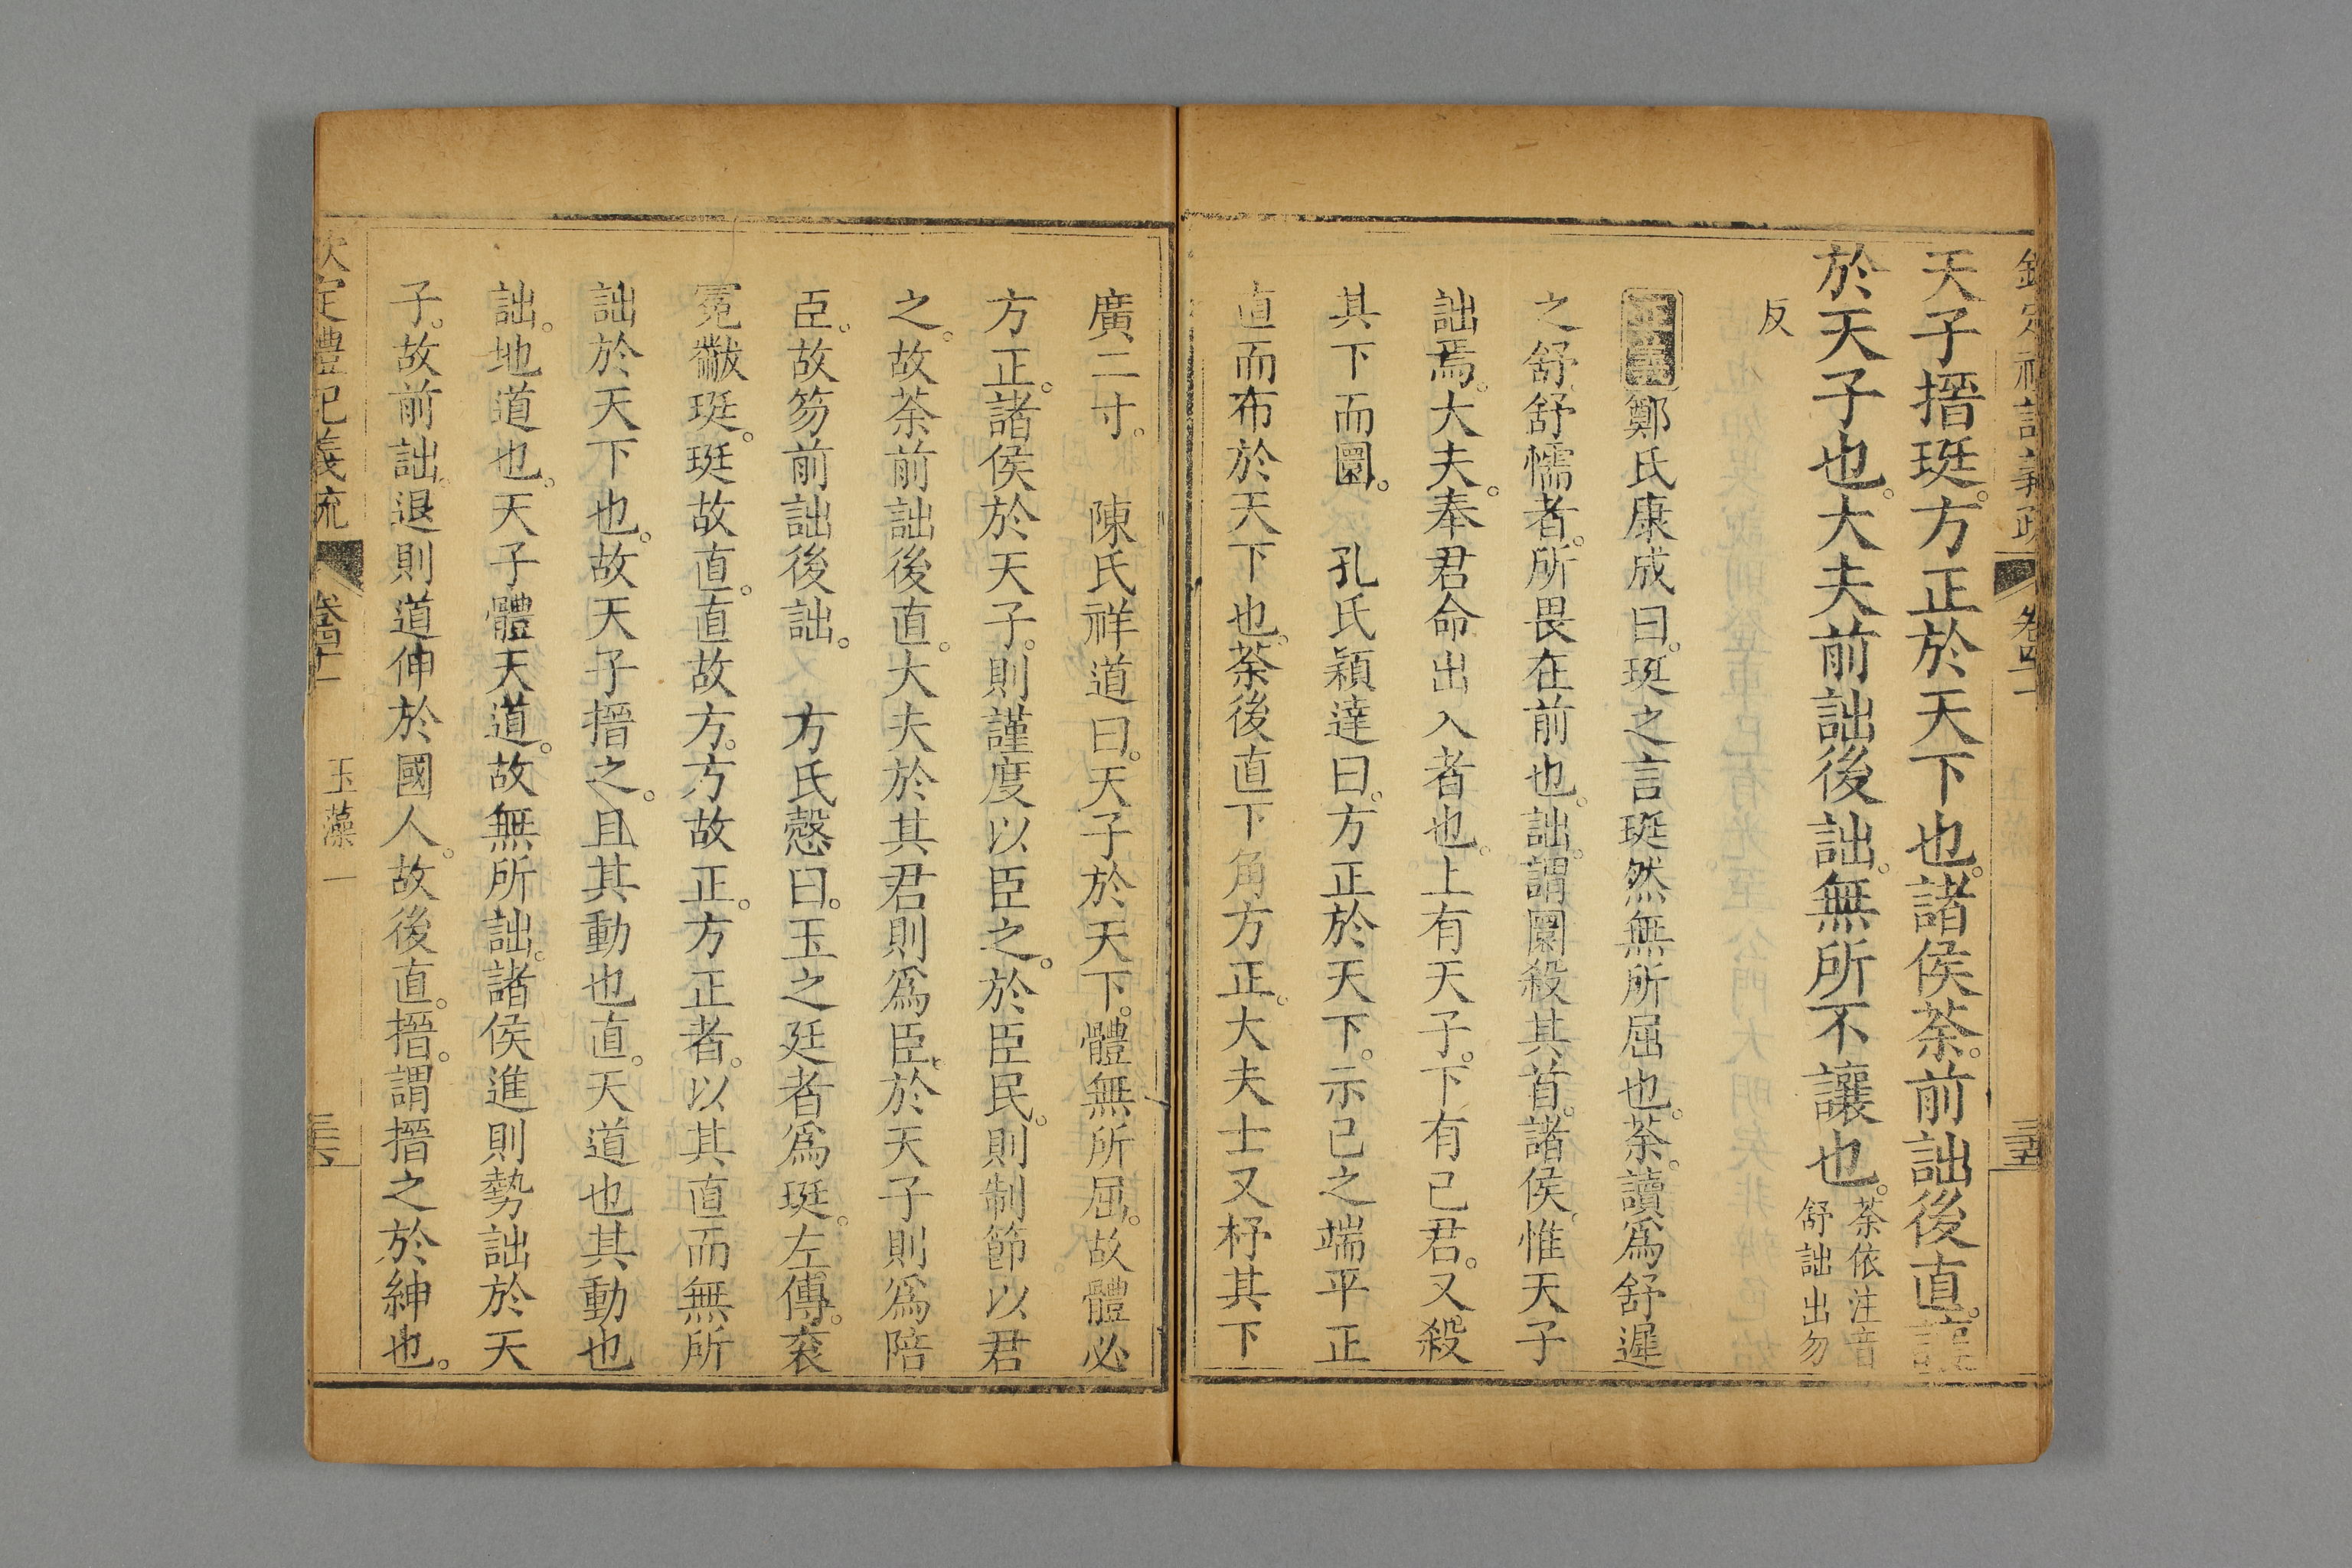 欽定禮記義疏 卷四十一 三五
天子搢珽。方正於天下也。諸侯荼。前詘後直。讓
於天子也。大夫前詘後詘。無所不讓也。荼依注音
舒詘出勿
反
正義鄭氏康成曰。珽之言珽然無所屈也。荼。讀爲舒遲
之舒。舒懦者。所畏在前也。詘。謂圜殺其首。諸侯。惟天子
詘焉。大夫。奉君命出入者也。上有天子。下有己君。又殺
其下而圜。 孔氏穎達曰。方正於天下。示己之端平正
直而布於天下也。荼後直下角方正。大夫士又杼其下
廣二寸。 陳氏祥道曰。天子於天下。體無所屈。故體必
方正。諸侯於天子。則謹度以臣之。於臣民。則制節以君
之。故荼前詘後直。大夫於其君則爲臣。於天子則爲陪
臣。故笏前詘後詘。 方氏慤曰。玉之廷者爲珽。左傳。衮
冕黻珽。珽故直。直故方。方故正。方正者。以其直而無所
詘於天下也。故天子搢之。且其動也直。天道也其動也
詘。地道也。天子體天道。故無所詘。諸侯進則勢詘於天
子。故前詘。退則道伸於國人。故後直。搢。謂搢之於紳也。
欽定禮記義疏 卷四十一 玉藻一